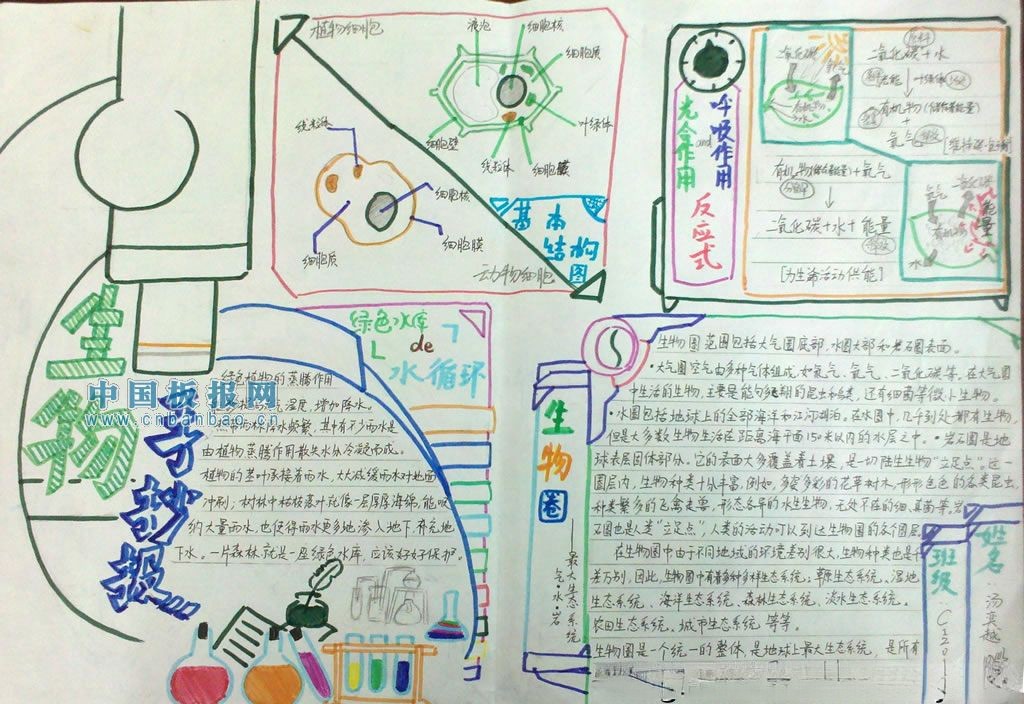 植物细胞
液泡
细胞核
细胞质
叶绿体
细胞膜
线粒体
细胞壁
线粒体
细胞核
细胞膜
细胞质
动物细胞
基本
结构
图
光合作用
and
呼吸作用
反应式
二氧化碳
氧气
二氧化碳+水
光能
叶绿体
有机物(储存着能量)
+
氧气
有机物(储存着能量)+氧气
二氧化碳+水+能量
[为生命活动供能]
氧气
二氧化碳
能量
有机物
水
生物
手抄报
中国板报网
www.cnbanbao.cn
绿色水库
de
水循环
绿色植物的蒸腾作用
湿度,增加降水。
由植物蒸腾作用散失水分冷凝而成。
植物的茎叶承接着雨水,大大减缓雨水对地面
冲刷;树林中枯枝落叶就像一层厚厚海绵,能吸
纳大量雨水,也使得雨水更多地渗入地下,补充地
下水。一片森林就是一座绿色水库,应该好好保护。
生物圈
——最大生态系统
气·水·岩
生物圈范围包括大气圈底部,水圈大部和岩石圈表面。
·大气圈空气由多种气体组成,如氮气、氧气、二氧化碳等。在大气圈
中生活的生物,主要是能够飞翔的昆虫和鸟类,还有细菌等微小生物。
·水圈包括地球上的全部海洋和江河湖泊。在水圈中,几乎到处都有生物,
但是大多数生物生活在距离海平面150米以内的水层之中。·岩石圈是地
球表层固体部分。它的表面大多覆盖着土壤,是一切陆生生物"立足点"。这一
圈层内,生物种类十分丰富,例如,多姿多彩的花草树木,形形色色的各类昆虫,
种类繁多的飞禽走兽,形态各异的水生生物,无处不在的细、真菌等,岩
石圈也是人类"立足点",人类的活动可以到达生物圈的各个圈层
在生物圈中由于不同地域的环境差别很大,生物种类也是千
差万别,因此,生物圈中有着多种多样生态系统:草原生态系统、湿地
生态系统、海洋生态系统、森林生态系统、淡水生态系统。
农田生态系统、城市生态系统等等。
生物圈是一个统一的整体,是地球上最大生态系统,是所有
班级
姓名